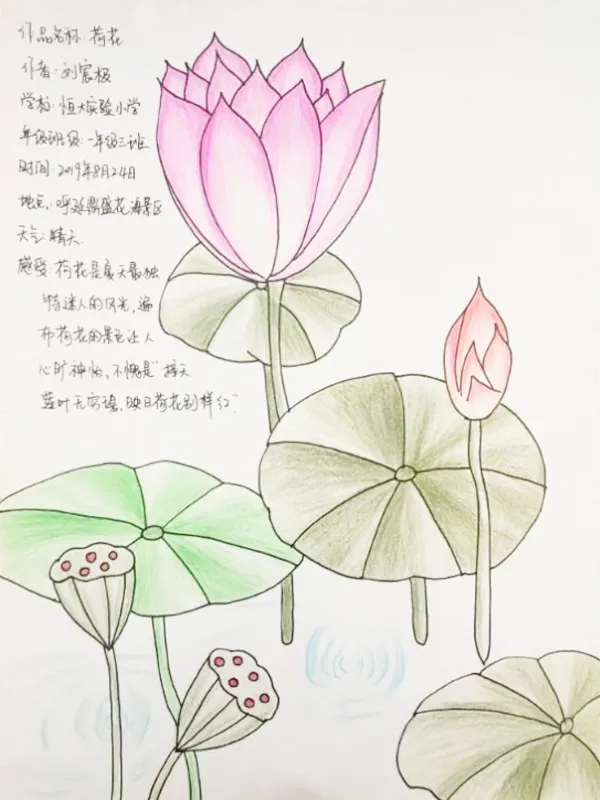 作品名称:荷花
作者:刘宸极
学校:恒大实验小学
年级班级:一年级三班
时间:2019年8月24日
地点:呼延鼎盛花海景区
天气:晴天
感受:荷花是夏天最独
特迷人的风光,遍
布荷花的景色让人
心旷神怡、不愧是"接天
莲叶无穷碧,映日荷花别样红"